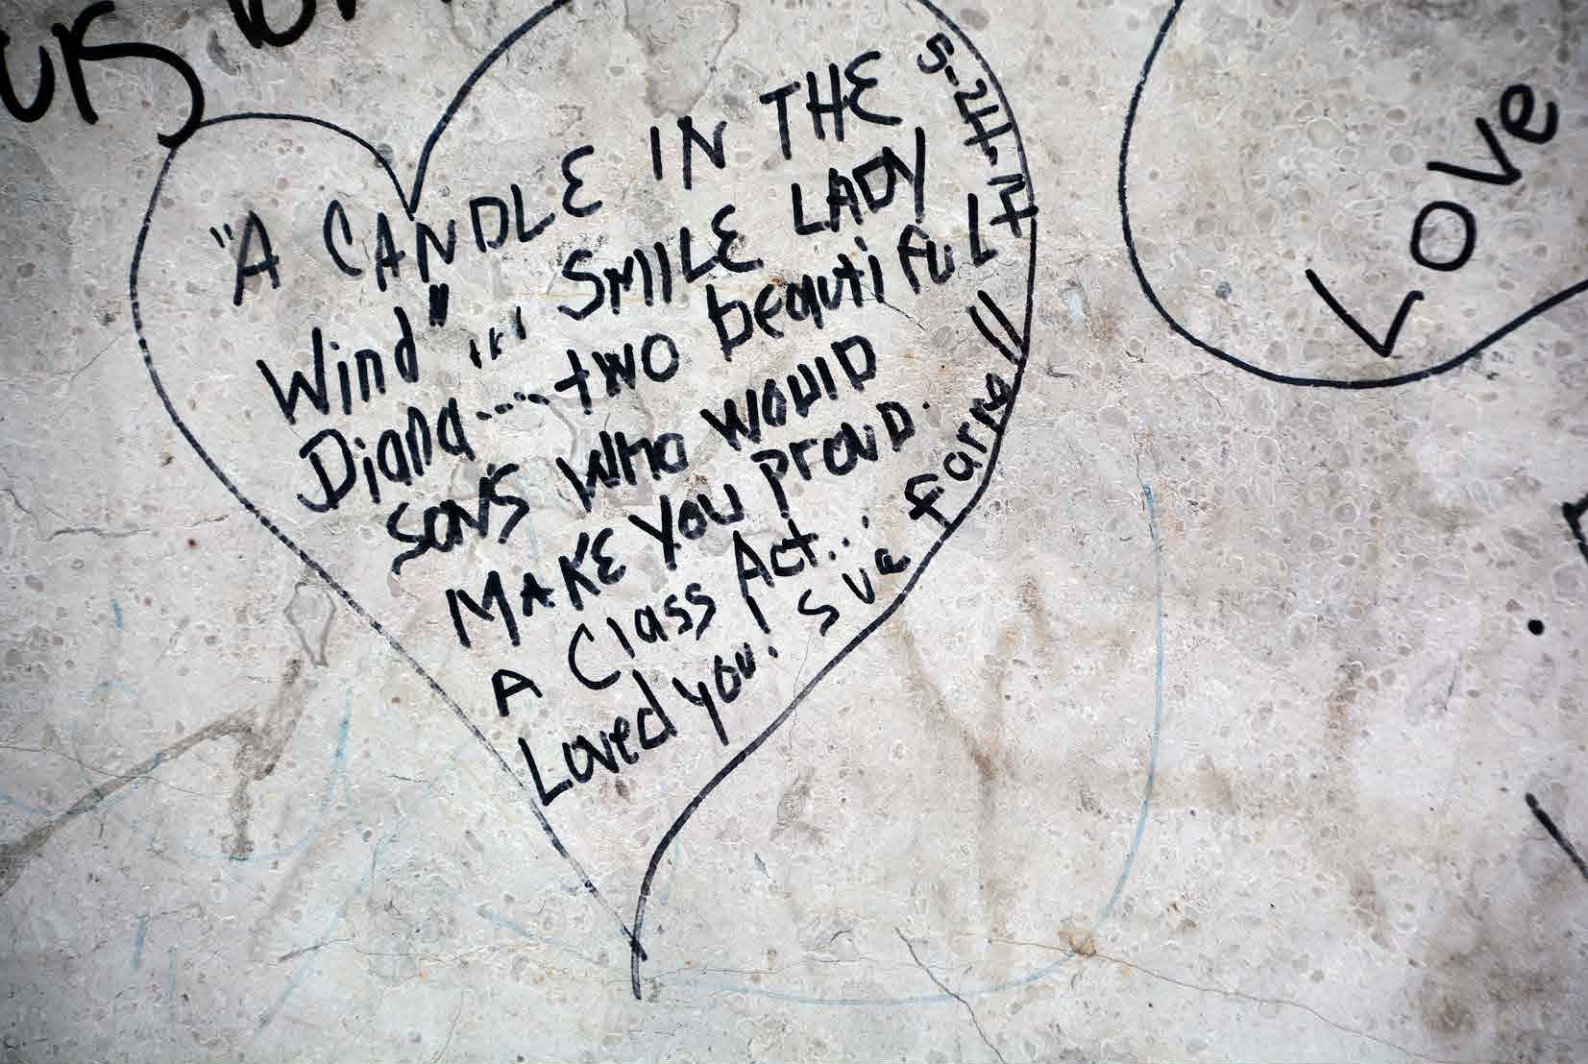 "A CANDLE IN THE
Wind"... SMILE LADY
Diana----two beautiful
SONS WHO WOULD
MAKE YOU PROUD.
A Class Act...
Loved you! Sue Farrell
5-24-14
Love